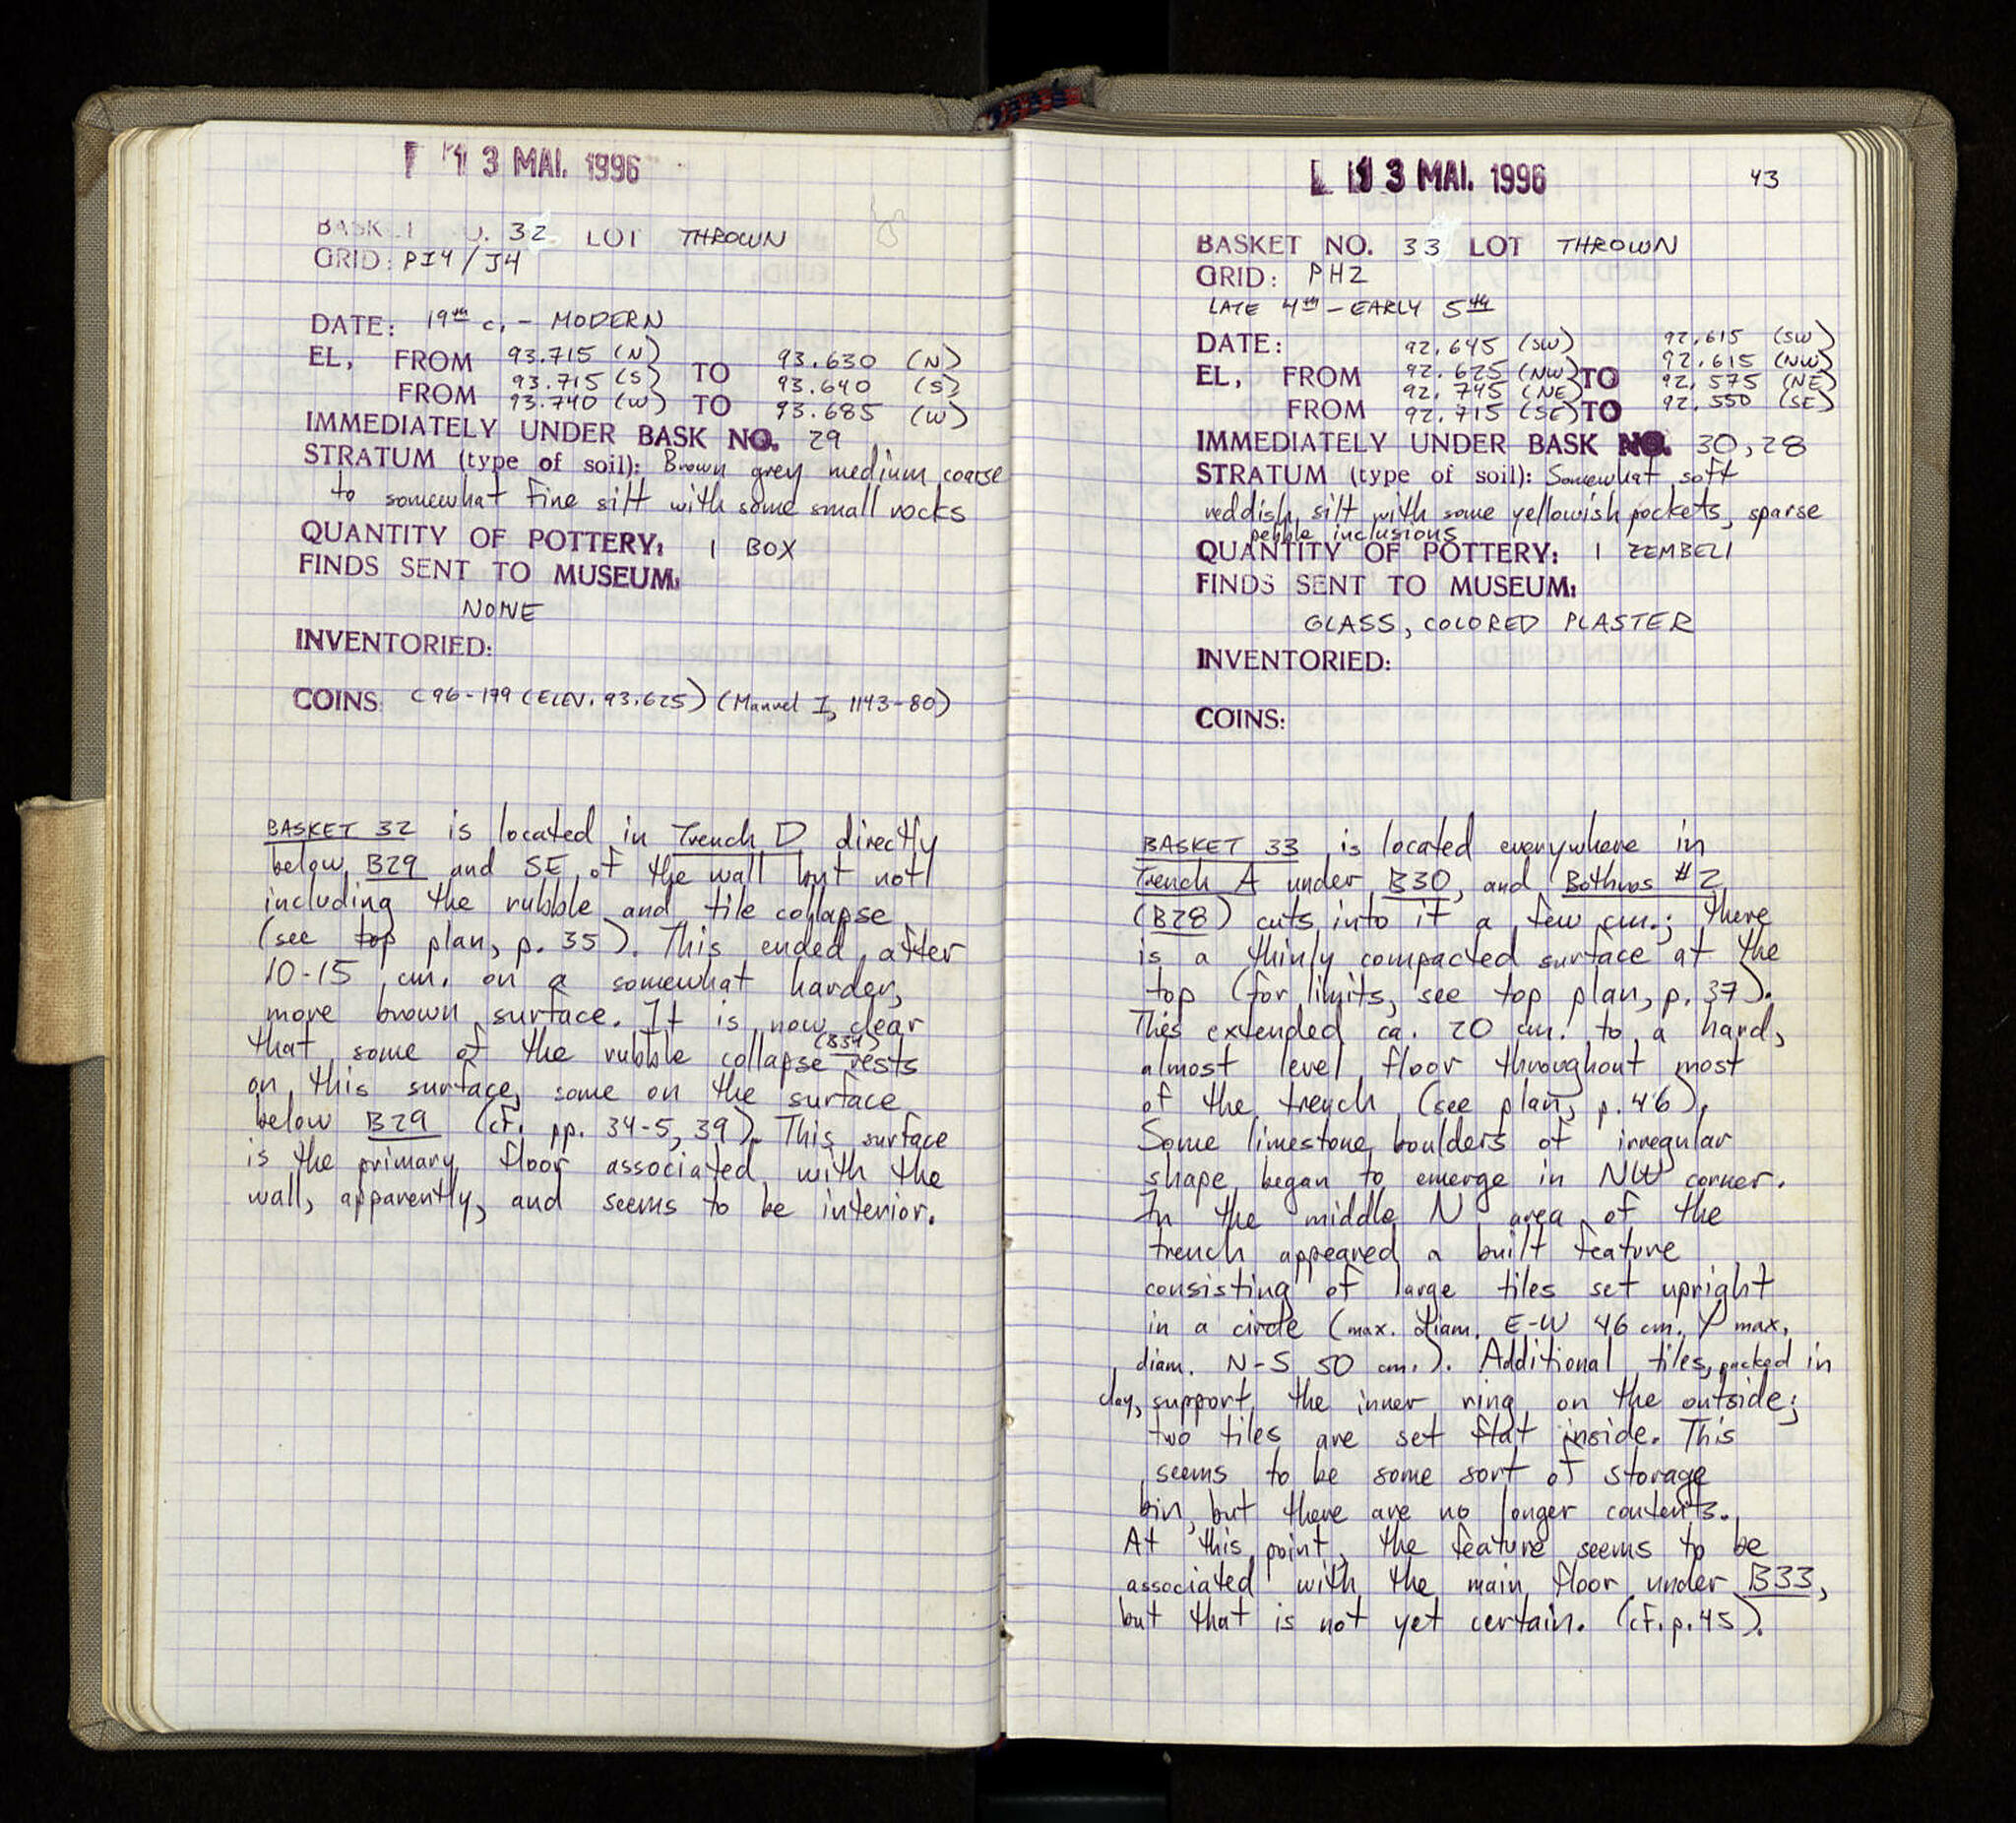 13 MAI. 1996
BASKET NO. 32 LOT THROWN
GRID: PI4/J4
DATE: 19th c. - MODERN
EL, FROM 93.715 (N) TO 93.630 (N)
93.715 (S) 93.640 (S)
FROM 93.740 (W) TO 93.685 (W)
IMMEDIATELY UNDER BASK NO. 29
STRATUM (type of soil): Brown grey medium coarse
to somewhat fine silt with some small rocks
QUANTITY OF POTTERY: 1 BOX
FINDS SENT TO MUSEUM:
NONE
INVENTORIED:
COINS: C96-179 (ELEV. 93.625) (Manuel I, 1143-80)
BASKET 32 is located in Trench D directly
below B29 and SE of the wall but not
including the rubble and tile collapse
(see top plan, p. 35). This ended after
10-15 cm. on a somewhat harder,
more brown surface. It is now clear
that some of the rubble collapse (B34) rests
on this surface, some on the surface
below B29 (cf. pp. 34-5, 39). This surface
is the primary floor associated with the
wall, apparently, and seems to be interior.
13 MAI. 1996
43
BASKET NO. 33 LOT THROWN
GRID: PH2
LATE 4th - EARLY 5th
DATE: 92.645 (SW) 92.615 (SW)
EL, FROM 92.625 (NW) TO 92.615 (NW)
92.745 (NE) 92.575 (NE)
FROM 92.715 (SE) TO 92.550 (SE)
IMMEDIATELY UNDER BASK NO. 30, 28
STRATUM (type of soil): Somewhat soft
reddish silt with some yellowish pockets, sparse
pebble inclusions
QUANTITY OF POTTERY: 1 ZEMBELI
FINDS SENT TO MUSEUM:
GLASS, COLORED PLASTER
INVENTORIED:
COINS:
BASKET 33 is located everywhere in
Trench A under B30, and Bothros #2
(B28) cuts into it a few cm.; there
is a thinly compacted surface at the
top (for limits, see top plan, p. 37).
This extended ca. 20 cm. to a hard,
almost level floor throughout most
of the trench (see plan, p. 46).
Some limestone boulders of irregular
shape began to emerge in NW corner.
In the middle N area of the
trench appeared a built feature
consisting of large tiles set upright
in a circle (max. diam. E-W 46 cm. max.
diam. N-S 50 cm.). Additional tiles, packed in
clay, support the inner ring on the outside;
two tiles are set flat inside. This
seems to be some sort of storage
bin, but there are no longer contents.
At this point, the feature seems to be
associated with the main floor under B33,
but that is not yet certain. (cf. p. 45).